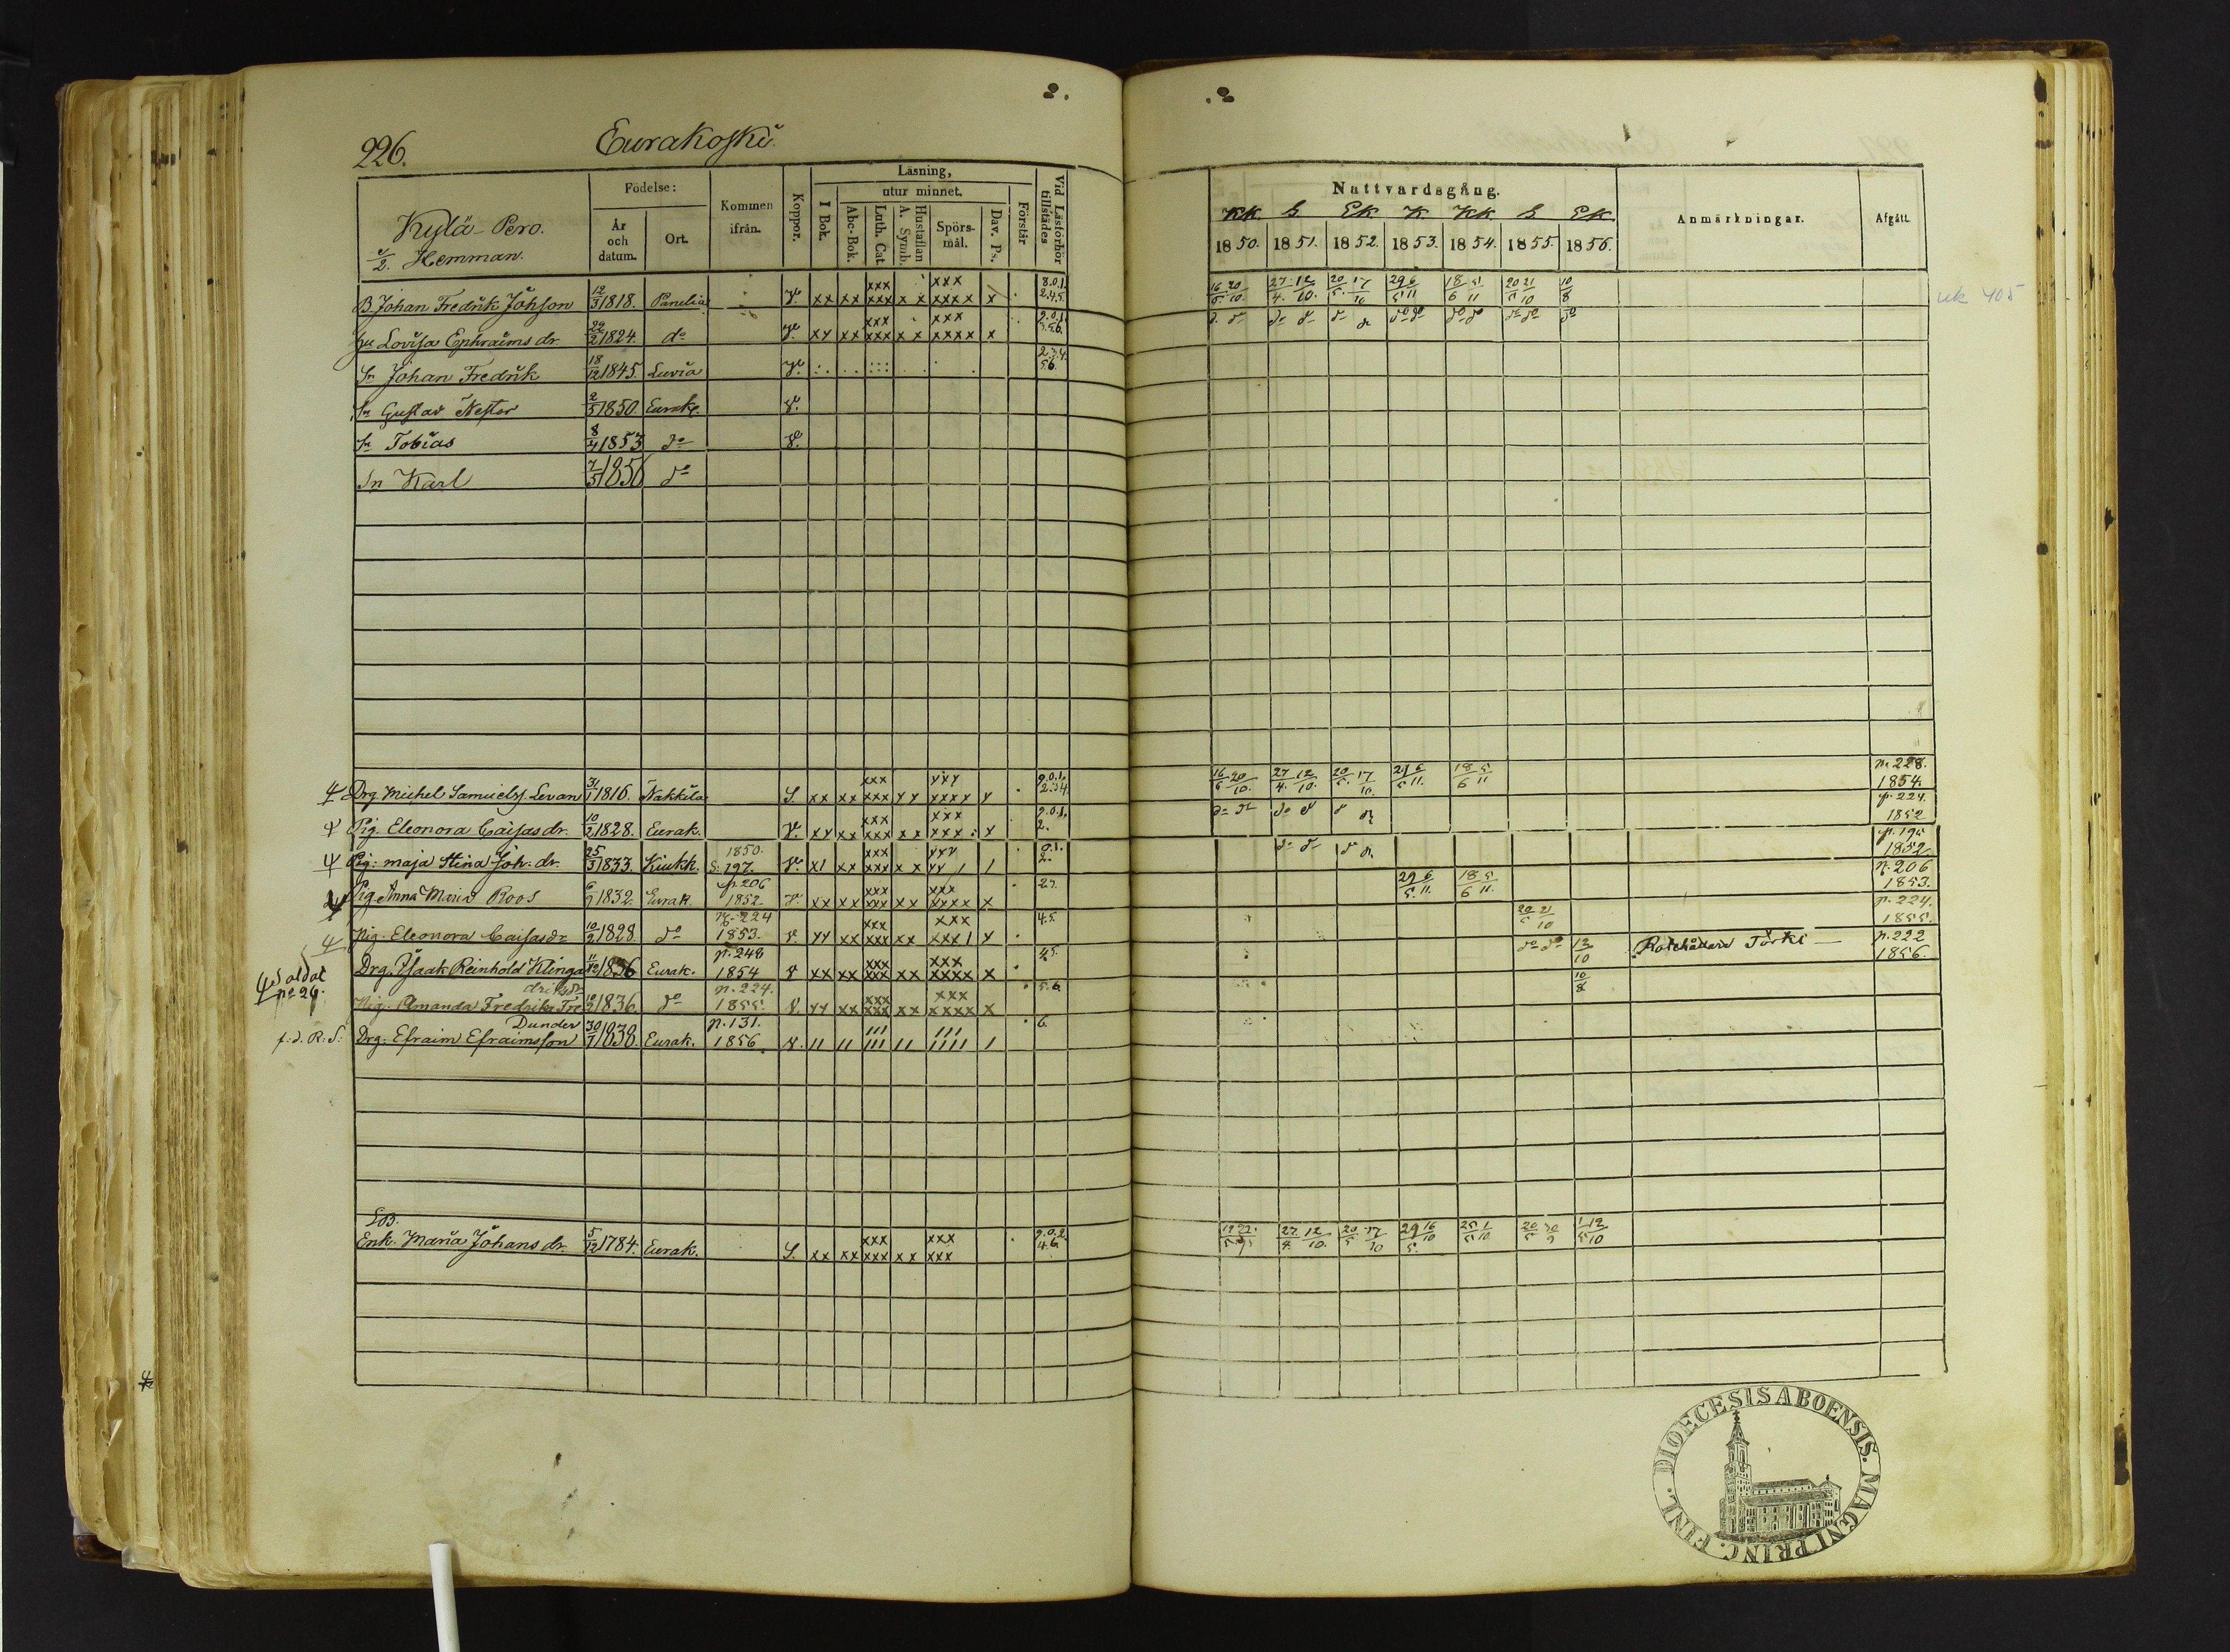 2.
226.
Eurakoski.
Kylä-Pero.
1/2. Hemman.
Födelse:
År och datum.
Ort.
Kommen ifrån.
Koppor.
Läsning,
I Bok.
utur minnet.
Abc-Bok.
Luth. Cat.
A. Symb. Hustaflan
Spörsmål.
Dav. Ps.
Förstår
Vid Läsförhör tillstädes
B. Johan Fredrik Johsson 12/3 1818. Panelia v. xx xx xxx xxx x x xxx xxxx x 8.0.1. 2.4.5.
Hu Lovisa Ephraims dr. 22/2 1824. do v. xx xx xxx xxx x x xxx xxxx x 9.0.1. 3.5.6.
Sn Johan Fredrik 18/12 1845. Luvia v. 2.3.4. 5.6.
Sn Gustav Nestor 2/5 1850. Eurak. v.
Sn Tobias 8/4 1853 do v.
Sn Karl 7/3 1856 do
Drg Michel Samuelss. Levan 3/1 1816. Nakkila S. xx xx xxx xxx yy yyy xxxx y 9.0.1. 2.3.4.
Pig. Eleonora Caisas dr. 10/2 1828. Eurak. v. xx xx xxx xxx x x xxx xxx x 9.0.1. 2.
Pig: Maja Stina Joh: dr. 25/3 1833. Kiukk. 1850. S: 197. v. x1 xx xxx xxx x x 0.1. 2.
Pig Anna Maria Roos 6/9 1832. Eurak. p. 206 1852. v. xx xx xxx xxx xx xxx xxxx x 2.3.
Pig. Eleonora Caisasdr 10/2 1828. do p. 224 1853. v. yy xx xxx xxx xx xxx xxx1 y 4.5.
Soldat
no 29.
Drg. Isaak Reinhold Klinga 11/12 1836 Eurak. p. 248 1854 v xx xx xxx xxx xx xxx xxxx x 4.5.
Pig. Amanda Fredrika Fredriksdr 10/2 1836. do p. 224. 1855. v. yy xx xxx xxx xx xxx xxxx x 5.6.
f.d. R: S:
Dunder
Drg: Efraim Efraimsson 30/1 1830. Eurak. p. 131. 1856. v. 11 11 111 111 11 111 1111 1 6.
EB.
Enk. Maria Johans dr. 5/12 1784. Eurak. S. xx xx xxx xxx xx xxx xxx 9.0.2. 4.6.
2.
Nattvardsgång.
KK. L EK. K KK. L EK.
1850. 1851. 1852. 1853. 1854. 1855. 1856.
Anmärkningar.
Afgått.
16/5 20/10. 27/4. 12/10. 20/5. 17/10 29/5 6/11 18/6 5/11 20/5 21/10 10/8
uk 405
do do do do do do do do do do do do do
16/5 20/10. 27/4. 12/10. 20/5. 17/10. 29/5 6/11. 18/6 5/11 p. 228. 1854.
do do do do do do p. 224. 1852
do do do do p. 195 1852
29/5 6/11. 18/6 5/11. p. 206 1853.
20/5 21/10 p. 224. 1855.
do do 12/10 Rotehållare Törki — p. 222 1856.
10/8
27/4. 12/10. 20/5 17/10 29/5. 16/10 25/5 1/10 20/5 30/9 1/5 12/10
DIOECESIS ABOENSIS. MAGNI PRINC. FINL.